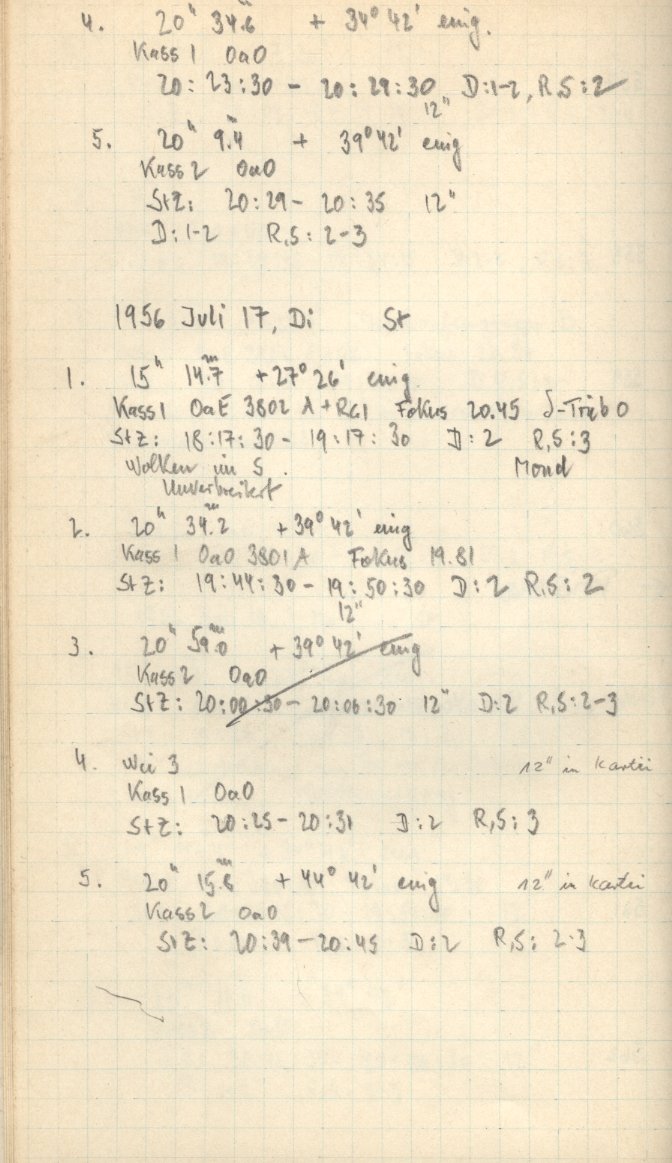 4. 20ʰ 34.6ᵐ + 34° 42' einig.
Kass 1 OaO
20:23:30 - 20:29:30 D:1-2, R,S:2
12"
5. 20ʰ 9.4ᵐ + 39° 42' einig
Kass 2 OaO
StZ: 20:29 - 20:35 12"
D:1-2 R,S:2-3
1956 Juli 17, Di St
1. 15ʰ 14.7ᵐ +27° 26' einig
Kass 1 OaE 3802 A + RG1 Fokus 20.45
StZ: 18:17:30 - 19:17:30 D:2 R,S:3
Wolken im S. Mond
Unverbreitert
2. 20ʰ 34.2ᵐ +39° 42' einig
Kass 1 OaO 3801 A Fokus 19.81
StZ: 19:44:30 - 19:50:30 D:2 R,S:2
12"
3. 20ʰ 59.0ᵐ +39° 42' einig
Kass 2 OaO
StZ: 20:00:30 - 20:06:30 12" D:2 R,S:2-3
4. Wei 3 12" in Kartei
Kass 1 OaO
StZ: 20:25 - 20:31 D:2 R,S:3
5. 20ʰ 15.8ᵐ +44° 42' einig 12" in Kartei
Kass 2 OaO
StZ: 20:39 - 20:45 D:2 R,S: 2-3